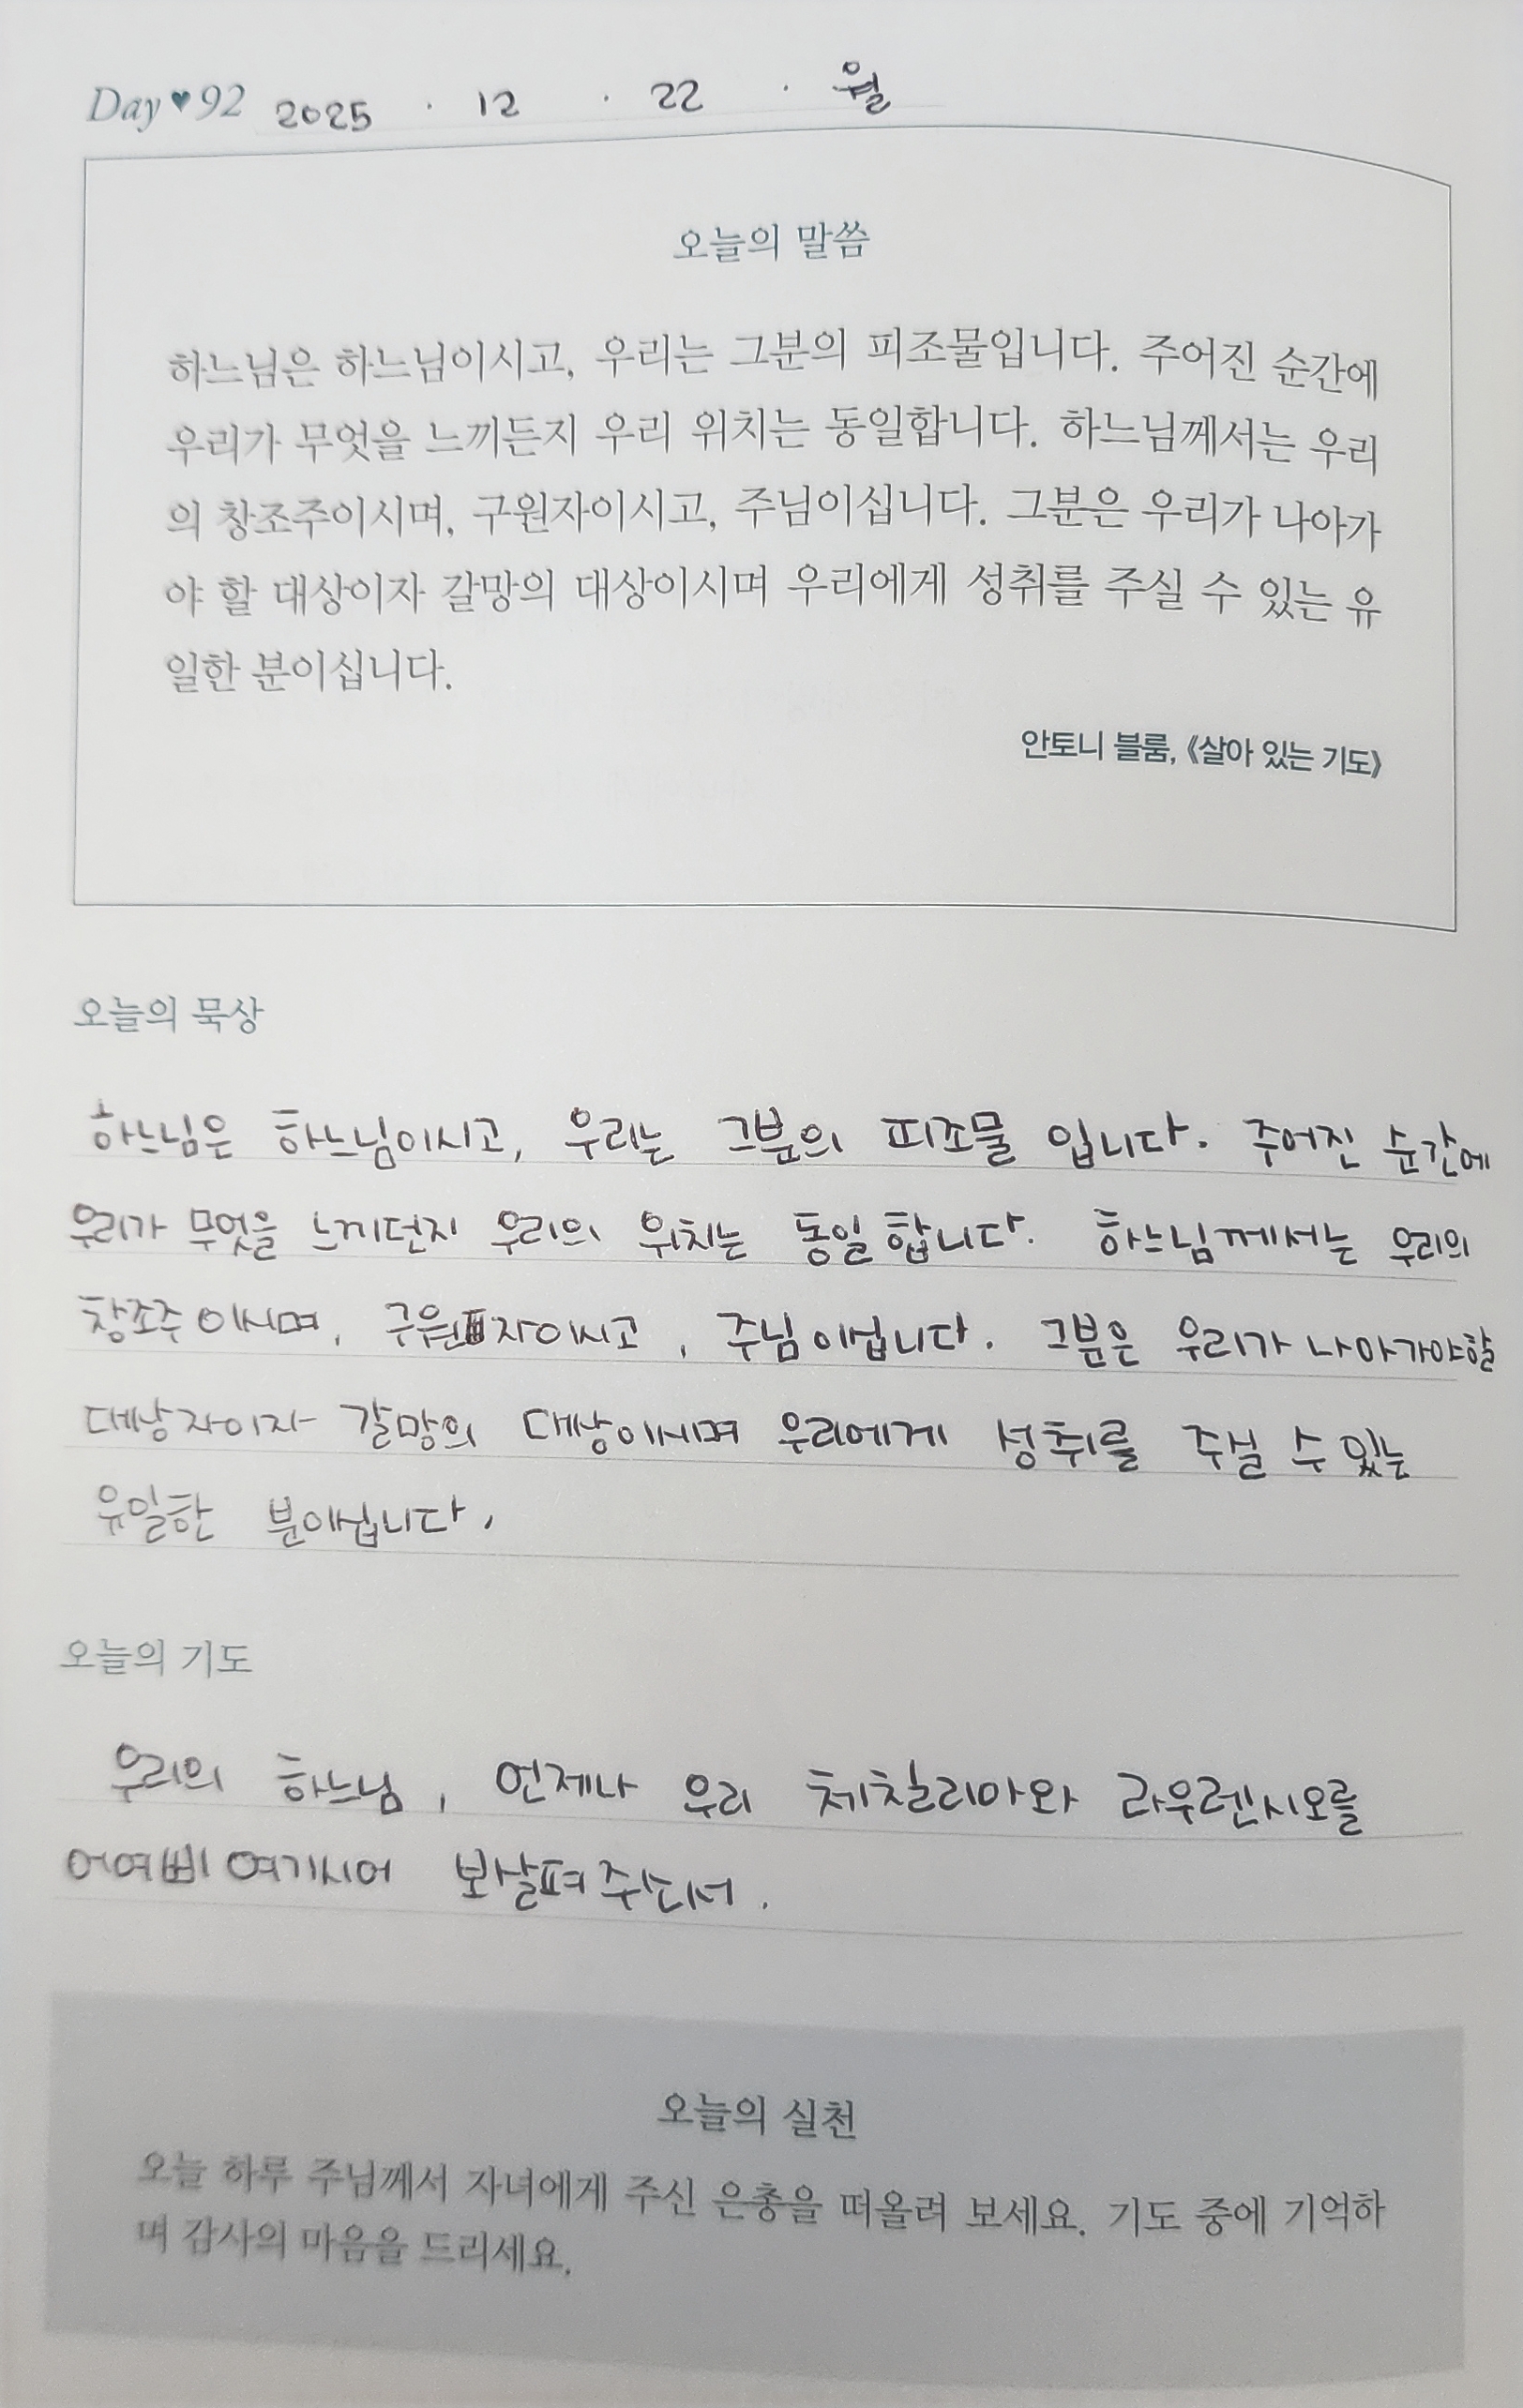 Day♥92 2025 . 12 . 22 . 월
오늘의 말씀
하느님은 하느님이시고, 우리는 그분의 피조물입니다. 주어진 순간에
우리가 무엇을 느끼든지 우리 위치는 동일합니다. 하느님께서는 우리
의 창조주이시며, 구원자이시고, 주님이십니다. 그분은 우리가 나아가
야 할 대상이자 갈망의 대상이시며 우리에게 성취를 주실 수 있는 유
일한 분이십니다.
안토니 블룸, 《살아 있는 기도》
오늘의 묵상
하느님은 하느님이시고, 우리는 그분의 피조물 입니다. 주어진 순간에
우리가 무엇을 느끼던지 우리의 위치는 동일 합니다. 하느님께서는 우리의
창조주 이시며, 구원자이시고, 주님 이십니다. 그분은 우리가 나아가야할
대상자이자 갈망의 대상이시며 우리에게 성취를 주실 수 있는
유일한 분이십니다.
오늘의 기도
우리의 하느님, 언제나 우리 체칠리아와 라우렌시오를
어여삐 여기시어 보살펴 주소서.
오늘의 실천
오늘 하루 주님께서 자녀에게 주신 은총을 떠올려 보세요. 기도 중에 기억하
며 감사의 마음을 드리세요.